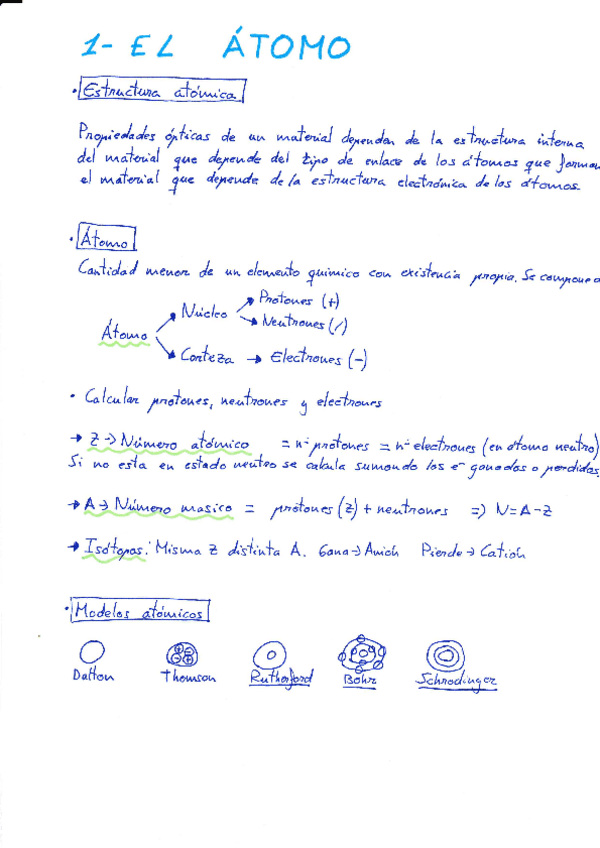 1- EL ÁTOMO
· Estructura atómica
Propiedades ópticas de un material dependen de la estructura interna
del material que depende del tipo de enlace de los átomos que forman
el material que depende de la estructura electrónica de los átomos.
· Átomo
Cantidad menor de un elemento químico con existencia propia. Se compone
Átomo
→ Núcleo
→ Protones (+)
→ Neutrones (/)
→ Corteza → Electrones (-)
· Calcular protones, neutrones y electrones
→ Z → Número atómico = nº protones = nº electrones (en átomo neutro)
Si no esta en estado neutro se calcula sumando los e⁻ ganados o perdidos.
→ A → Número masico = protones (z) + neutrones => N = A - Z
→ Isótopos: Misma Z distinta A. Gana → Anión Pierde → Catión
· Modelos atómicos
Dalton Thomson Rutherford Bohr Schrodinger